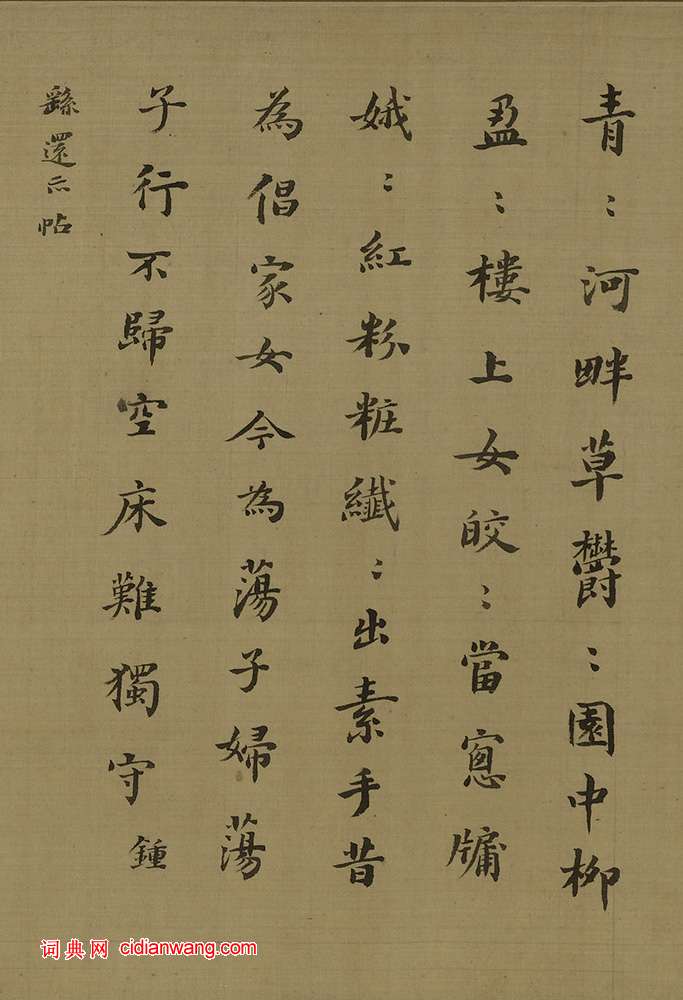 青〻河畔草欝〻園中柳
盈〻樓上女皎〻當窻牖
娥〻紅粉粧纖〻出素手昔
為倡家女今為蕩子婦蕩
子行不歸空床難獨守 鍾
繇還示帖
词典网 cidianwang.com